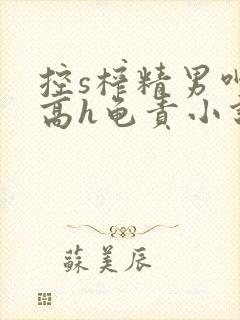 控s榨精男
高h龟责小
蘇美辰